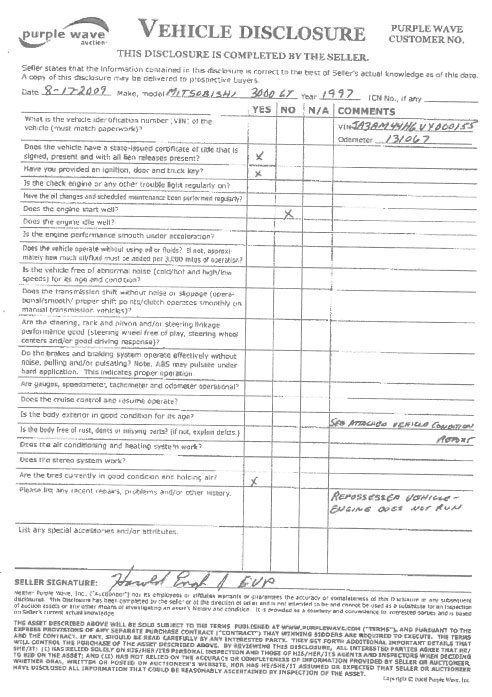 purple wave
auction
VEHICLE DISCLOSURE
PURPLE WAVE
CUSTOMER NO.
THIS DISCLOSURE IS COMPLETED BY THE SELLER.
Seller states that the information contained in this disclosure is correct to the best of Seller's actual knowledge as of this date.
A copy of this disclosure may be delivered to prospective buyers.
Date 8-17-2009 Make, model MITSUBISHI 3000 GT Year 1997 ICN No., if any
YES NO N/A COMMENTS
What is the vehicle identification number (VIN) of the
vehicle (must match paperwork)?
VIN JA3AM44H6VY000155
Odometer 131067
Does the vehicle have a state-issued certificate of title that is
signed, present and with all lien releases present? X
Have you provided an ignition, door and truck key? X
Is the check engine or any other trouble light regularly on?
Have the oil changes and scheduled maintenance been performed regularly?
Does the engine start well? X
Does the engine idle well?
Is the engine performance smooth under acceleration?
Does the vehicle operate without using oil or fluids? If not, approxi-
mately how much oil/fluid must be added per 3,000 miles of operation?
Is the vehicle free of abnormal noise (cold/hot and high/low
speeds) for its age and condition?
Does the transmission shift without noise or slippage (opera-
tional/smooth/ proper shift points/clutch operates smoothly on
manual transmission vehicles)?
Are the steering, rack and pinion and/or steering linkage
performance good (steering wheel free of play, steering wheel
centers and/or good driving response)?
Do the brakes and braking system operate effectively without
noise, pulling and/or pulsating? Note, ABS may pulsate under
hard application. This indicates proper operation
Are gauges, speedometer, tachometer and odometer operational?
Does the cruise control and resume operate?
Is the body exterior in good condition for its age?
Is the body free of rust, dents or missing parts? (If not, explain defects.)
SEE ATTACHED VEHICLE CONDITION
REPORT
Does the air conditioning and heating system work?
Does the stereo system work?
Are the tires currently in good condition and holding air? X
Please list any recent repairs, problems and/or other history.
REPOSSESSED VEHICLE -
ENGINE DOES NOT RUN
List any special accessories and/or attributes.
SELLER SIGNATURE: EVP
Neither Purple Wave, Inc. ("Auctioneer") nor its employees or affiliates warrants or guarantees the accuracy or completeness of this Disclosure or any subsequent
disclosures. This Disclosure has been completed by the seller or at the direction of seller and is not intended to be and cannot be used as a substitute for an inspection
of auction assets or any other means of investigating an asset's history and condition. It is provided as a courtesy and convenience to interested parties and is based
on Seller's current actual knowledge.
THE ASSET DESCRIBED ABOVE WILL BE SOLD SUBJECT TO THE TERMS PUBLISHED AT WWW.PURPLEWAVE.COM ("TERMS"), AND PURSUANT TO THE
EXPRESS PROVISIONS OF ANY SEPARATE PURCHASE CONTRACT ("CONTRACT") THAT WINNING BIDDERS ARE REQUIRED TO EXECUTE. THE TERMS
AND THE CONTRACT, IF ANY, SHOULD BE READ CAREFULLY BY ANY INTERESTED PARTIES. THEY SET FORTH ADDITIONAL IMPORTANT DETAILS THAT
WILL CONTROL THE PURCHASE OF THE ASSET DESCRIBED ABOVE. BY REVIEWING THIS DISCLOSURE, ALL INTERESTED PARTIES AGREE THAT HE/
SHE/IT: (1) HAS RELIED SOLELY ON HIS/HER/ITS PERSONAL INSPECTION AND THOSE OF HIS/HER/ITS AGENTS AND INSPECTORS WHEN DECIDING
TO BID ON THE ASSET; AND (II) HAS NOT RELIED ON THE ACCURACY OR COMPLETENESS OF INFORMATION PROVIDED BY SELLER OR AUCTIONEER,
WHETHER ORAL, WRITTEN OR POSTED ON AUCTIONEER'S WEBSITE, NOR HAS HE/SHE/IT ASSUMED OR EXPECTED THAT SELLER OR AUCTIONEER
HAVE DISCLOSED ALL INFORMATION THAT COULD BE REASONABLY ASCERTAINED BY INSPECTION OF THE ASSET.
Copyright © Purple Wave, Inc.